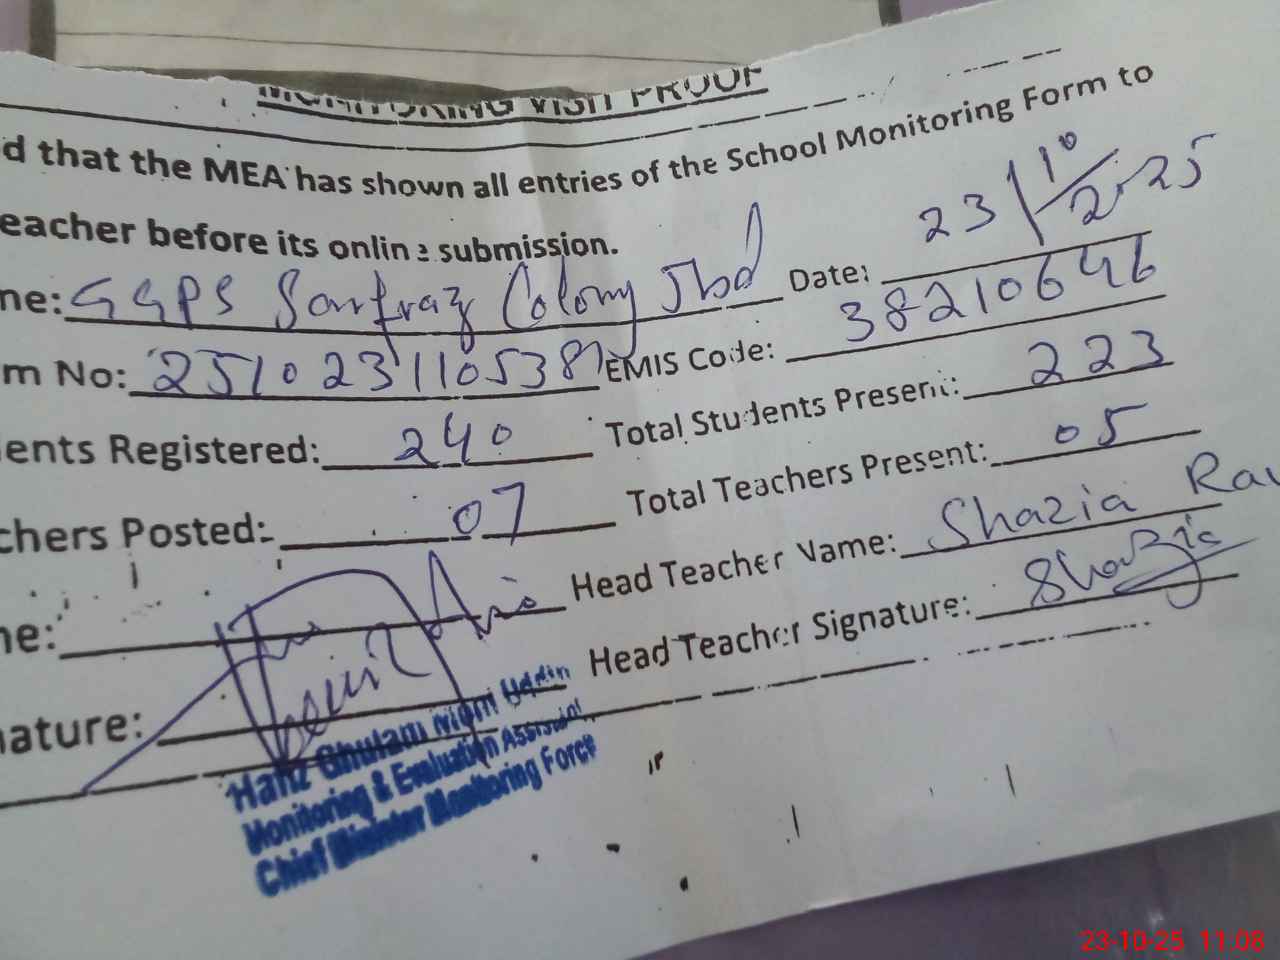 MONITORING VISIT PROOF
d that the MEA has shown all entries of the School Monitoring Form to
eacher before its online submission.
ne: GGPS Sarfraz Colony Jbd Date: 23/10/2025
m No: 2510231105381 EMIS Code: 38210646
ents Registered: 240 Total Students Present: 223
chers Posted: 07 Total Teachers Present: 05
ne: Head Teacher Name: Shazia Rau
nature: Head Teacher Signature: Shazia
Hafiz Ghulam Moin Uddin
Monitoring & Evaluation Assistant
Chief Minister Monitoring Force
23-10-25 11:08